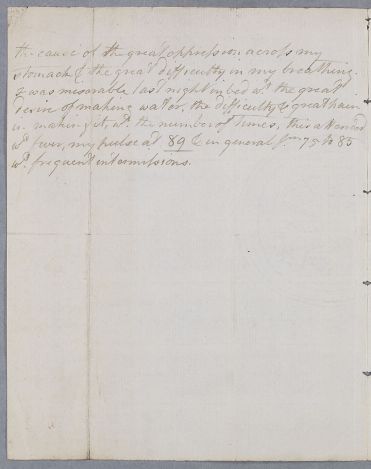 the cause of the great oppression across my
stomach & the great difficulty in my breathing.
I was miserable last night in bed wt. the great
desire of making water, the difficulty & great pain
in making it, wt. the number of times, this attended
wt. fever, my pulse at 89 & in general from 75 to 85
wt. frequent intermissions.